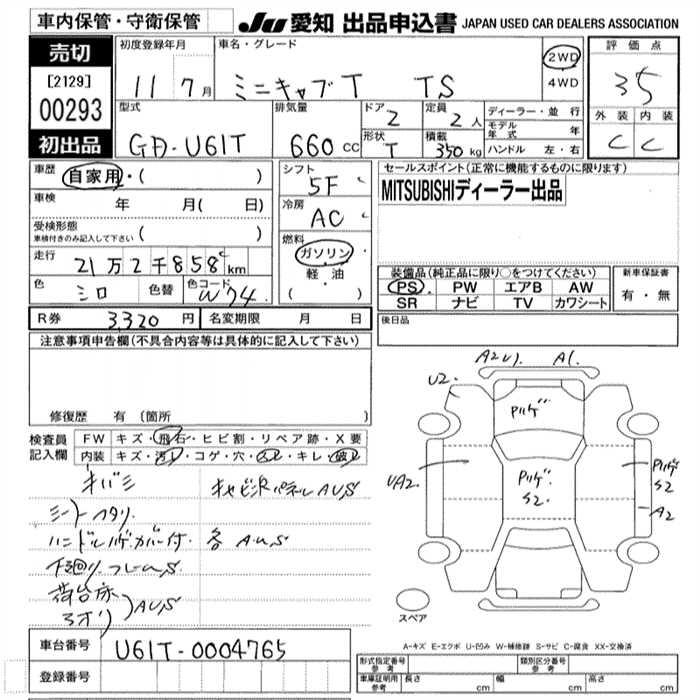 車内保管・守衛保管
JU 愛知 出品申込書 JAPAN USED CAR DEALERS ASSOCIATION
売切
[2129]
00293
初出品
初度登録年月
11 7月
車名・グレード
ミニキャブT TS
2WD
4WD
評価点
35
外装 内装
C C
型式
GD-U61T
排気量
660 CC
ドア
2
定員
2人
形状
T
積載
350kg
ディーラー・並行
モデル年式 年
ハンドル 左・右
車歴
自家用・( )
車検 年 月( 日)
受検形態
車検付きのみ記入して下さい ( )
走行
21万2千858km
色
シロ
色替
色コード
W74
シフト
5F
冷房
AC
燃料
ガソリン・
軽油
( )
セールスポイント(正常に機能するものに限ります)
MITSUBISHIディーラー出品
装備品(純正品に限り○をつけてください)
PS PW エアB AW
SR ナビ TV カワシート
新車保証書
有・無
R券 3,320円 名変期限 月 日
後日品
注意事項申告欄(不具合内容等は具体的に記入して下さい)
修復歴 有 (箇所
検査員記入欄
FW キズ・飛石・ヒビ割・リペア跡・X要
内装 キズ・汚レ・コゲ・穴・スレ・キレ・破レ
キバミ
キャビン床パネルAUS
シートヘタリ
ハンドルハゲ.カバー付.
各 AUS
下廻リ.フレームS
荷台床
アオリ
AUS
A2U). A1.
U2.
Pハゲ
Pハゲ.
S2.
UA2.
Pハゲ
S2
A2
スペア
A-キズ E-エクボ U-凹み W-補修跡 S-サビ C-腐食 XX-交換済
車台番号 U61T-0004765
登録番号
形式指定番号 参考
類別区分番号 参考
車庫証明用 参考
長さ cm 幅 cm 高さ cm